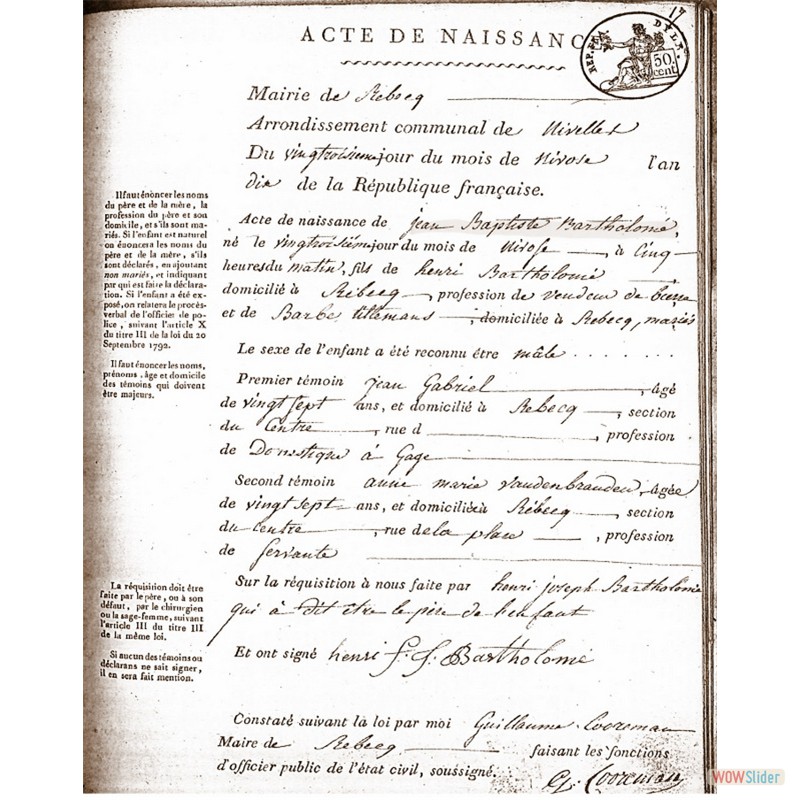 17
ACTE DE NAISSANC
REP. FRA. DYLE.
50. cent
Mairie de Rebecq
Arrondissement communal de Nivelles
Du vingtroisiem jour du mois de Nivose l'an
dix de la République française.
Il faut énoncer les noms
du père et de la mère, la
profession du père et son
domicile, et s'ils sont ma-
riés. Si l'enfant est naturel
on énoncera les noms du
père et de la mère, s'ils
sont déclarés, en ajoutant
non mariés, et indiquant
par qui est faite la déclara-
tion. Si l'enfant a été ex-
posé, on relatera le procès-
verbal de l'officier de po-
lice, suivant l'article X
du titre III de la loi du 20
Septembre 1792.
Il faut énoncer les noms,
prénoms, âge et domicile
des témoins qui doivent
être majeurs.
Acte de naissance de jean Baptiste Bartholomé,
né le vingtroisiém jour du mois de Nivose, à Cinq
heures du matin, fils de henri Bartholomé
domicilié à Rebecq, profession de vendeur de bierre
et de Barbe tillemans, domiciliée à Rebecq, mariés
Le sexe de l'enfant a été reconnu être mâle ........
Premier témoin jean Gabriel, âgé
de vingt sept ans, et domicilié à Rebecq, section
du Centre, rue d, profession
de Domestique à Gage
Second témoin anne marie vandenbranden, âgée
de vingt sept ans, et domiciliée à Rébecq, section
du centre, rue de la place, profession
de Servante
La réquisition doit être
faite par le père, ou à son
défaut, par le chirurgien
ou la sage-femme, suivant
l'article III du titre III
de la même loi.
Si aucun des témoins ou
déclarans ne sait signer,
il en sera fait mention.
Sur la réquisition à nous faite par henri joseph Bartholomé
qui à dit etre le père de l'enfant
Et ont signé henri J. J. Bartholomé
Constaté suivant la loi par moi Guillaume Cooreman
Maire de Rebecq faisant les fonctions
d'officier public de l'état civil, soussigné. G. Cooreman
WOWSlider